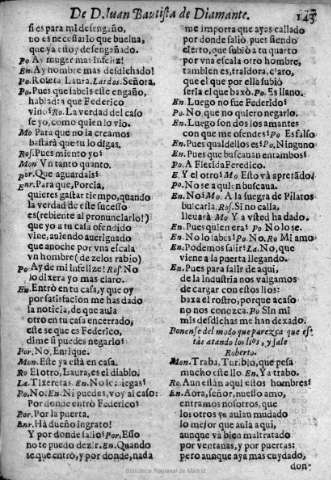 De D. Iuan Bautista de Diamante.
143
si es para mi desengaño,
no es necessario que buelua,
que ya estoy desengañado.
Po. Ay muger mas infeliz!
En. Ay hombre mas desdichado!
Po. Roleta, Laura. Las dos. Señora.
Po. Pues que labeis este engaño,
hablad: a que Federico
vino? Ro. La verdad del caso
se yo, como quien lo vio.
Mo Para que no la creamos
bastarà que tu lo digas.
Ros. Pues miento yo?
Mon. Vn tanto quanto.
Por. Que aguardais?
Enr. Para que, Porcia,
quieres gastar tiempo, quando
la verdad de este sucesso
es (rebiente al pronunciarlo!)
que yo a tu casa ofendido
vine, auiendo aueriguado
que anoche por vna escala
vn hombre (de zelos rabio)
Po. Ay de mi infelize! Ros. No
lo dixera yo mas claro.
En. Entrò en tu casa, y que oy
por satisfacion me has dado
la noticia, de que aula
otro en tu casa encerrado,
este se que es Federico,
dime si puedes negarlo?
Por. No, Enrique.
Mon. Este ya està en casa.
Ro El otro, Laura, es el diablo.
La. Tixeretas. En. No lo niegas?
Po. No. En. Ni puedes, voy al caso:
Por donde entrò Federico?
Por. Por la puerta.
Enr. Ha dueño ingrato!
Y por donde salio? Por. Esso
no te puedo dezir. En. Quando
se que entrò, y por donde, nada
me importa que ayas callado
por donde saliò, pues siendo
cierto, que subiò a tu quarto
por vna escala otro hombre,
tambien es, traidora, claro,
que el que por ella subiò
seria el que baxò. Po. Es llano.
En. Luego no fue Federido?
Po. No, que no quiero negarlo.
En. Luego son dos los amantes
con que me ofendes? Po. Es falso
En. Pues qual dellos es? Po. Ninguno
En. Pues que buscauan entrambos?
Po. A Flerida Feredico.
E. Y el otro? Mo Esto và apresado.
Po. No se a quien buscaua.
En. No? Mo. A la suegra de Pilatos
buscarla. Ros. Si no calla,
lleuarà Mo Y a vsted ha dado.
En. Pues quien era? Po No lo se.
En. No lo sabes? Po. No. Ro Mi amo
En. Podemos salir? La. No, que
viene a la puerta llegando.
En. Pues para salir de aqui,
de la industria nos valgamos
de cargar con estos lios:
baxa el rostro, porque acaso
no nos conozca. Po Sin mi
mis desdichas me han dexado.
Ponense del modo que parezca que est-
tàs atando los lios, y sale
Roberto.
Mon. Traba, Turbio, que pesa
mucho este lio. En. Ya trabo.
Ro. Aun estàn aqui estos hombres?
En. Aora, señor, nuestro amo,
entramos nosotros, que
los otros ya aulan mudado
lo mejor que aula aqui,
aunque va bien maltratado
por ventanas, y por puertas;
pero aunque aya mas cuidado
don-
Biblioteca Nacional de Madrid